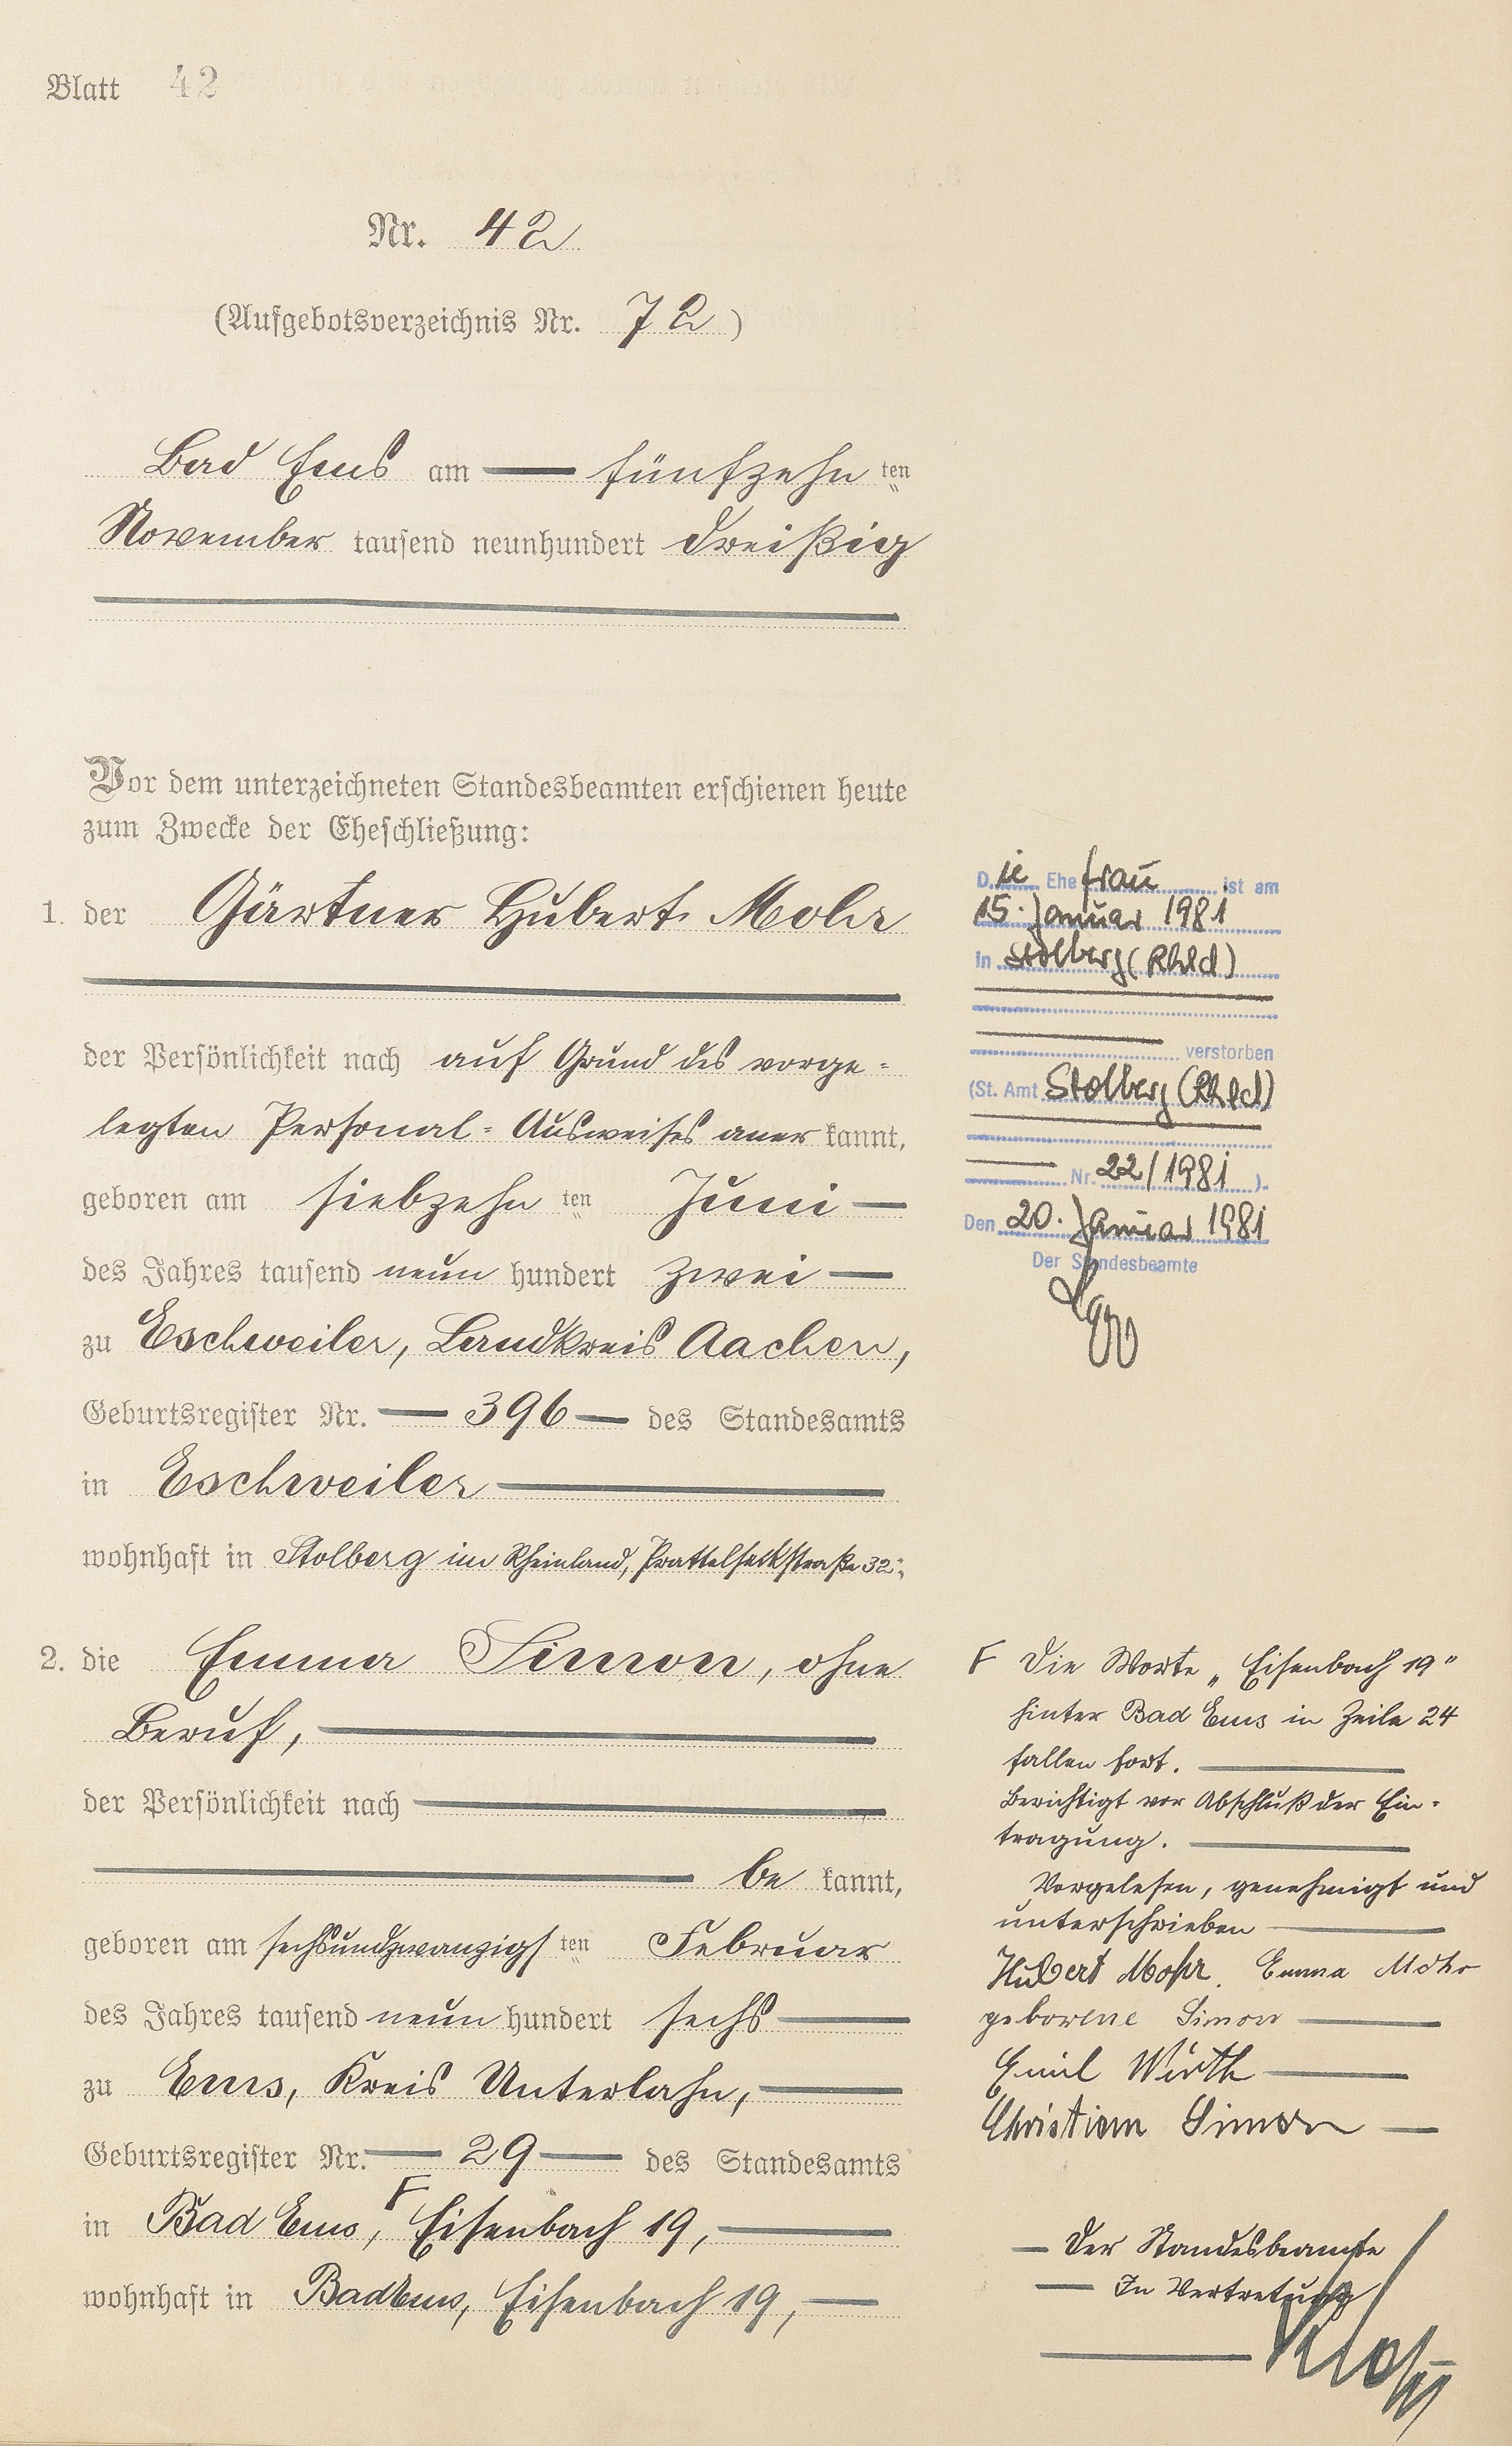 Blatt 42
Nr. 42
(Aufgebotsverzeichnis Nr. 72)
Bad Ems am fünfzehn ten
November tausend neunhundert dreißig
Vor dem unterzeichneten Standesbeamten erschienen heute
zum Zwecke der Eheschließung:
1. der Gärtner Hubert Mohr
der Persönlichkeit nach auf Grund des vorge=
legten Personal=Ausweises aner kannt,
geboren am siebzehn ten Juni
des Jahres tausend neun hundert zwei
zu Eschweiler, Landkreis Aachen,
Geburtsregister Nr. 396 des Standesamts
in Eschweiler
wohnhaft in Stolberg im Rheinland, 32;
2. die Emma Simon, ohne
Beruf,
der Persönlichkeit nach
be kannt,
geboren am sechsundzwanzigs ten Februar
des Jahres tausend neun hundert sechs
zu Ems, Kreis Unterlahn,
Geburtsregister Nr. 29 des Standesamts
in Bad Ems, F Eisenbach 19,
wohnhaft in Bad Ems, Eisenbach 19,
Die Ehefrau ist am
15. Januar 1981
in Stolberg (Rhld)
verstorben
(St. Amt Stolberg (Rhld)
Nr. 22/1981 ).
Den 20. Januar 1981
Der Standesbeamte
F Die Worte „Eisenbach 19"
hinter Bad Ems in Zeile 24
fallen fort.
Berichtigt vor Abschluß der Ein=
tragung.
Vorgelesen, genehmigt und
unterschrieben
Hubert Mohr. Emma Mohr
geborene Simon
Emil Wirth
Christian Simon
Der Standesbeamte
In Vertretung